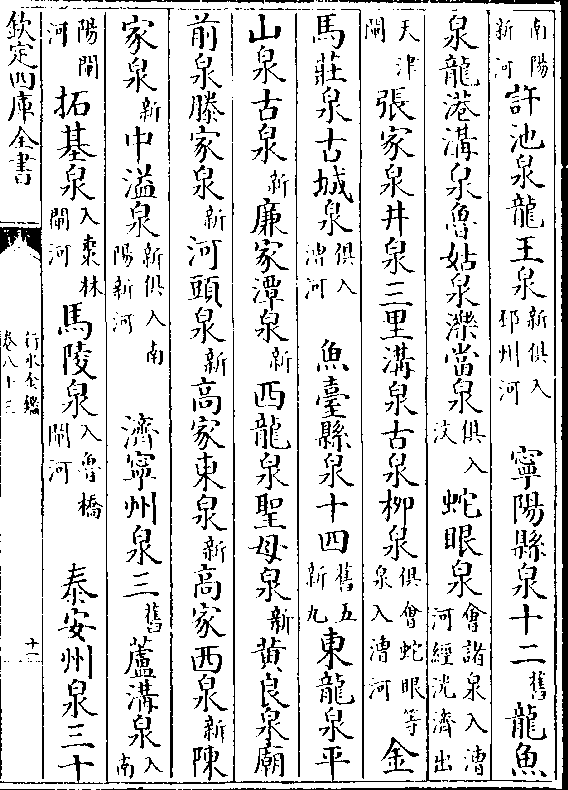 南陽新河許池泉龍王泉新俱入邳州河　寧陽縣泉十二舊龍魚
泉龍港溝泉魯姑泉濼當泉俱入汶蛇眼泉會諸泉入漕河經洸濟出
天津閘張家泉井泉三里溝泉古泉柳泉俱會蛇眼等泉入漕河金
馬莊泉古城泉俱入漕河　魚臺縣泉十四舊五新九東龍泉平
山泉古泉新廉家潭泉新西龍泉聖母泉新黄良泉廟
前泉滕家泉新河頭泉新高家東泉新高家西泉新陳
家泉新中溢泉新俱入南陽新河　濟寧州泉三舊蘆溝泉入南
陽閘河拓基泉入棗林閘河馬陵泉入魯橋閘河　泰安州泉三十
欽定四庫全書
行水金鑑
卷八十三
十一